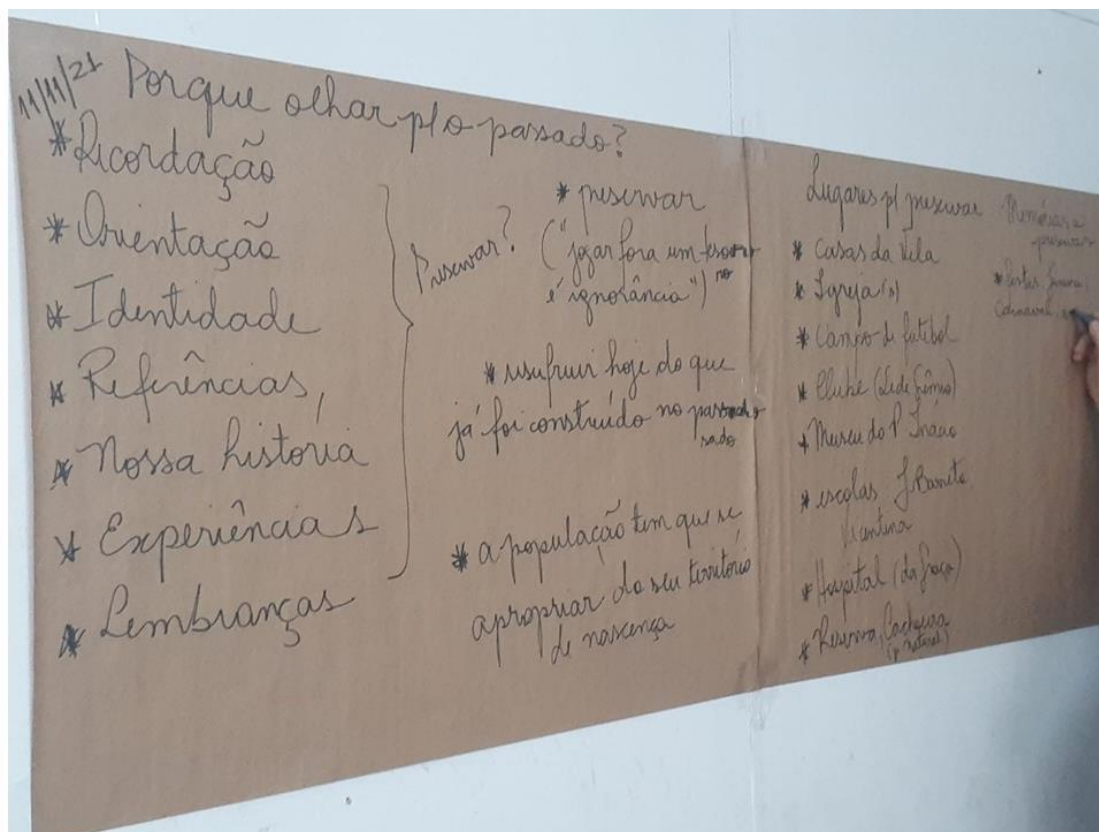 11/11/21
Porque olhar p/o passado?
* Recordação
* Orientação
* Identidade
* Referências,
* Nossa história
* Experiências
* Lembranças
Preservar?
* preservar
("jogar fora um tesouro
é ignorância") no
* usufruir hoje do que
já foi construído no passado
sado
* a população tem que se
apropriar do seu território
de nascença
Lugares p/ preservar
* Casas da Vila
* Igreja(s)
* Campo de futebol
* Clube (Sede)
* Museu do
* escolas J. Barreto
Vicentina
* Hospital (da
* Reserva, Cachoeira
(p natural)
Memórias a
preservar
* Festas
Carnaval